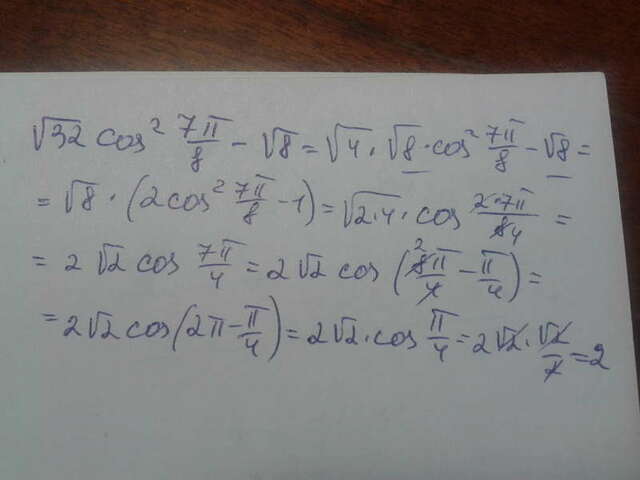 √32 cos² 7π/8 - √8 = √4 · √8 · cos² 7π/8 - √8 =
= √8 · (2cos² 7π/8 - 1) = √2·4 · cos 2·7π/84 =
= 2√2 cos 7π/4 = 2√2 cos (²8π/4 - π/4) =
= 2√2 cos (2π - π/4) = 2√2 · cos π/4 = 2√2 · √2/2 = 2